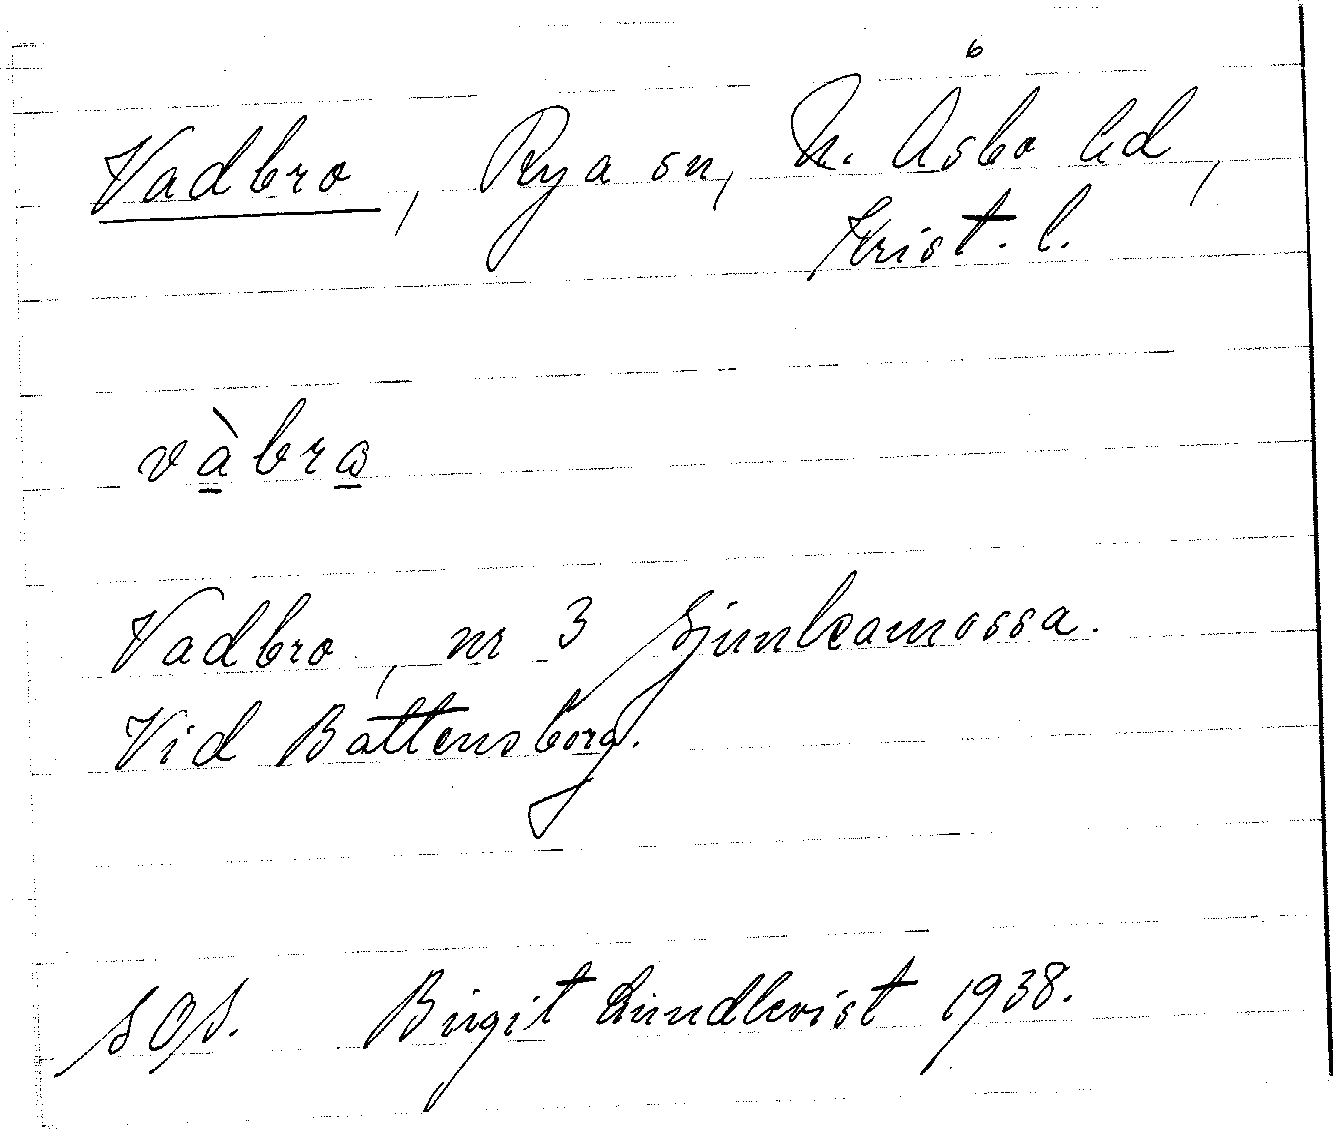 Vadbro, Rya sn, N. Åsbo hd,
Krist. l.
vàbra
Vadbro, nr 3 Ljunkamossa.
Vid Battensborg.
SOS. Birgit Lundkvist 1938.